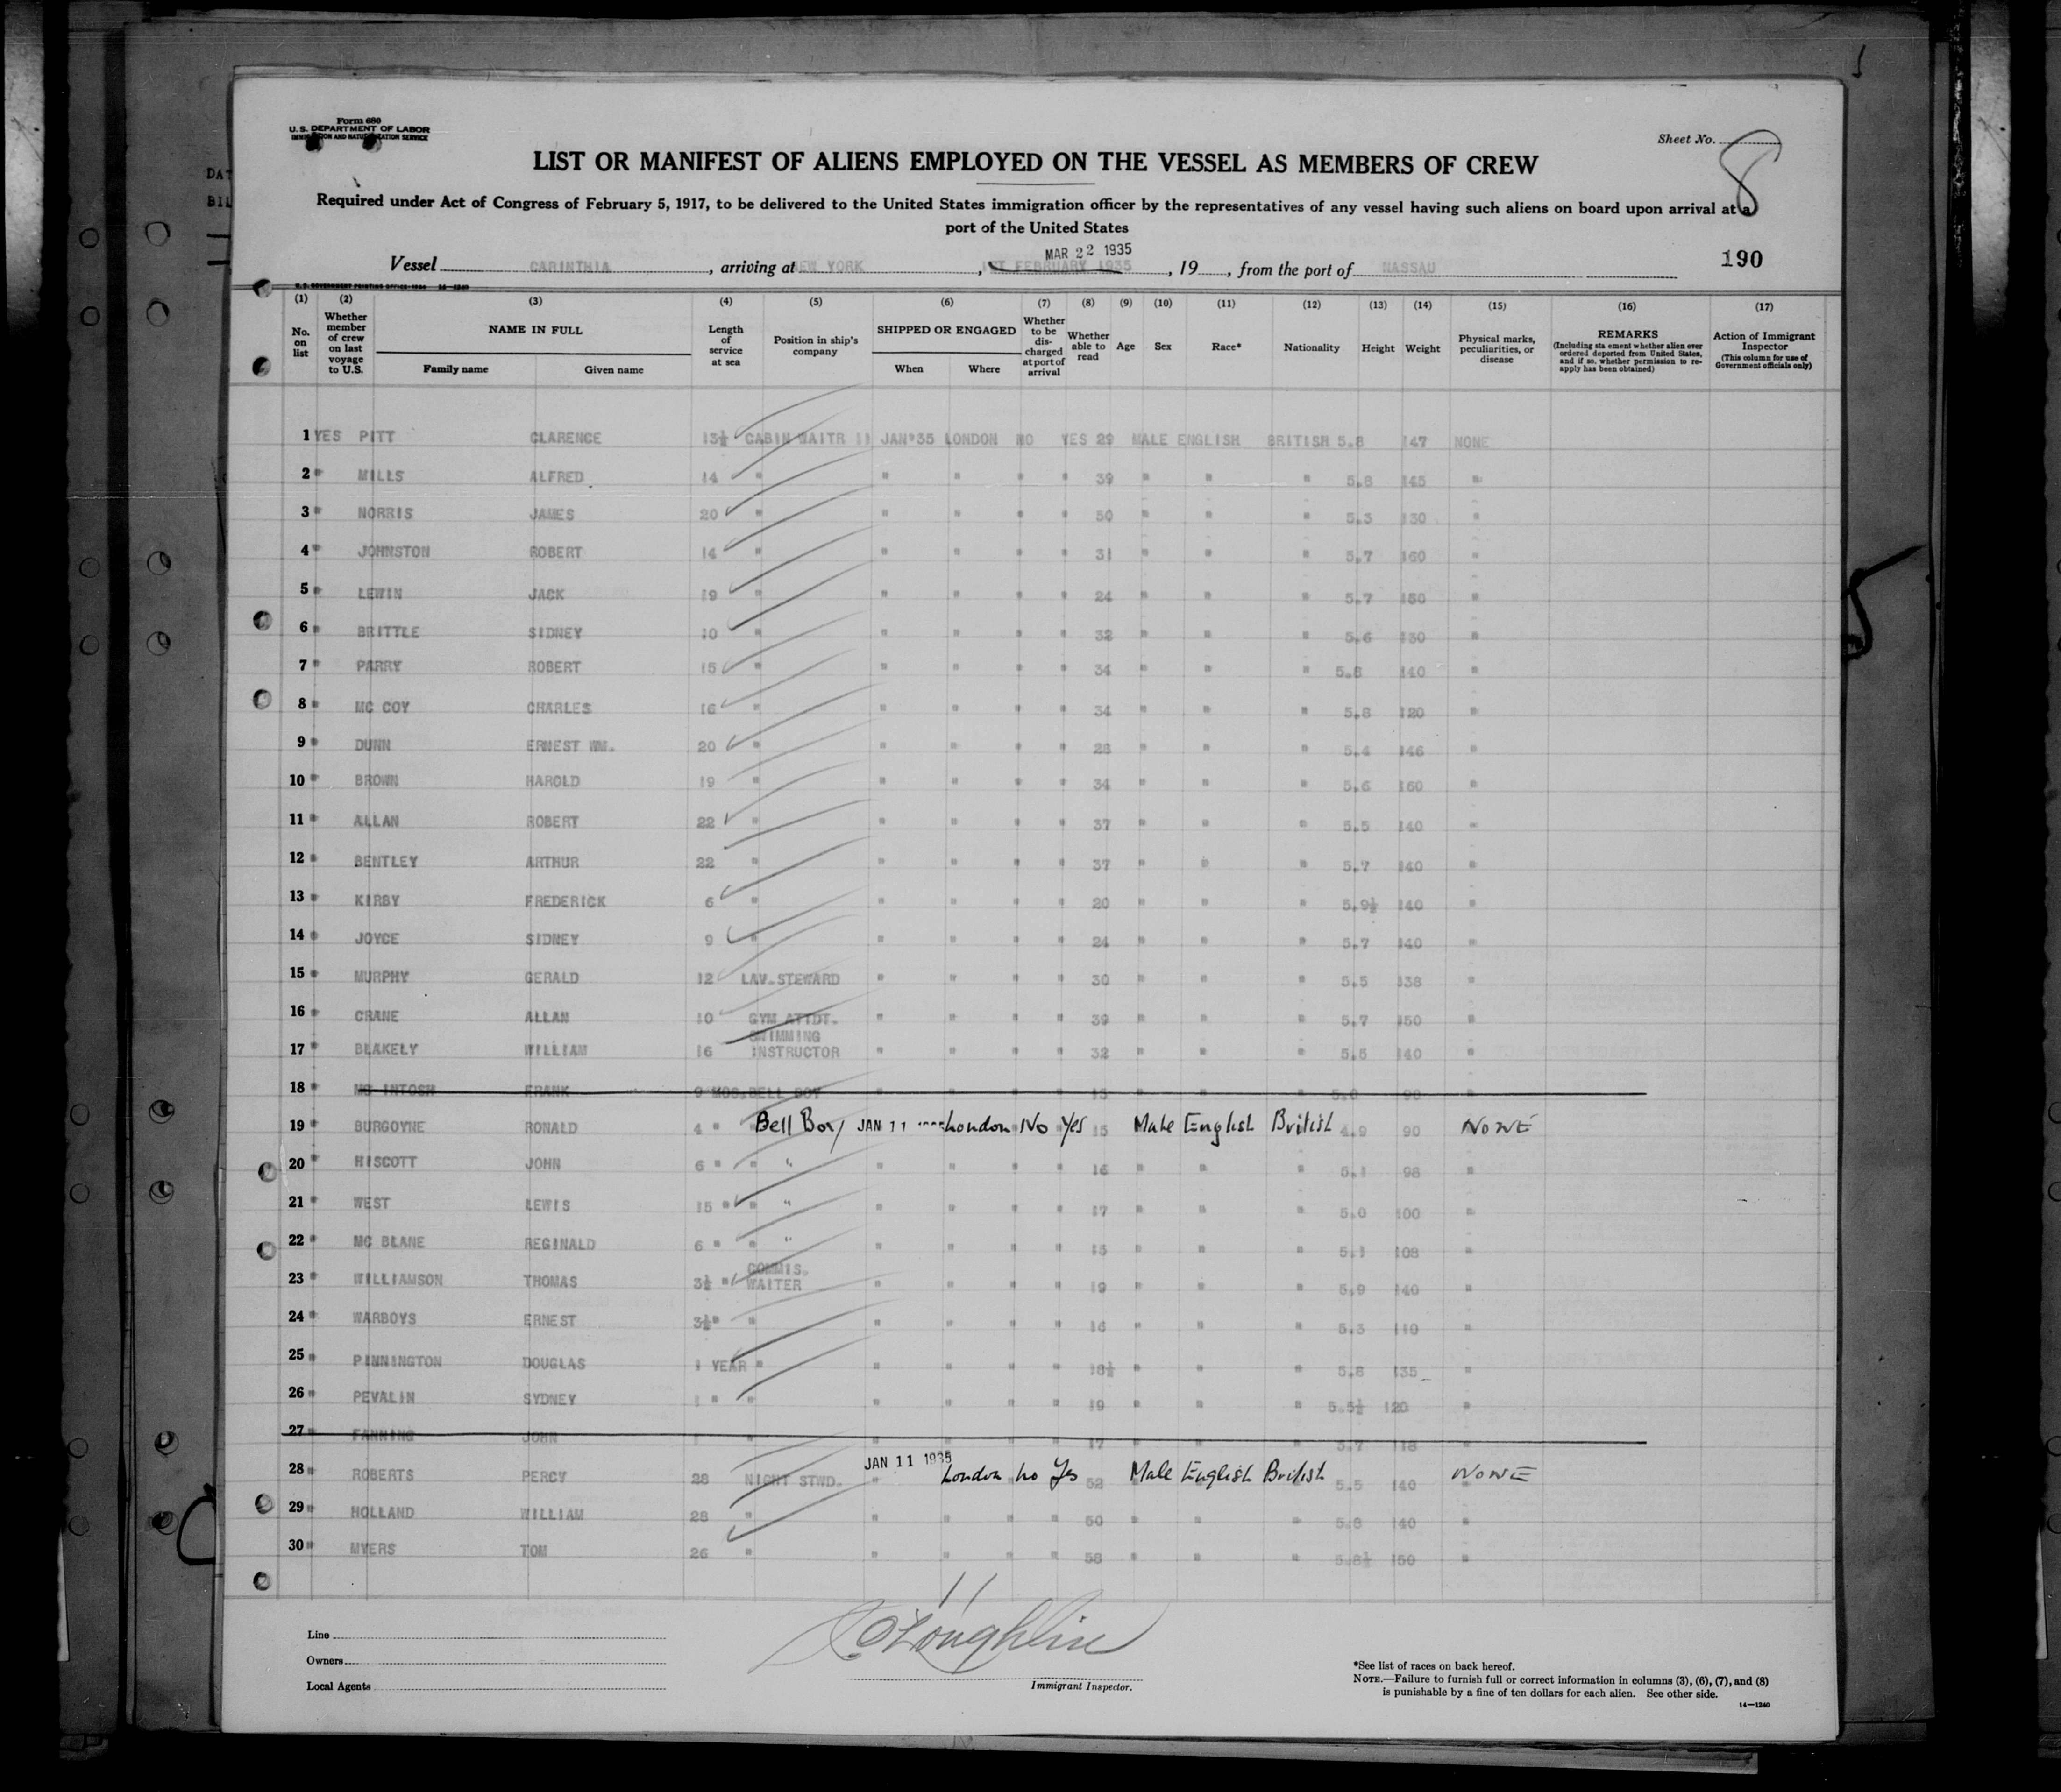 Form 680
U.S. DEPARTMENT OF LABOR
IMMIGRATION AND NATURALIZATION SERVICE
Sheet No. 8
LIST OR MANIFEST OF ALIENS EMPLOYED ON THE VESSEL AS MEMBERS OF CREW
Required under Act of Congress of February 5, 1917, to be delivered to the United States immigration officer by the representatives of any vessel having such aliens on board upon arrival at a
port of the United States
MAR 22 1935
Vessel CARINTHIA, arriving at NEW YORK, 1ST FEBRUARY 1935, 19, from the port of NASSAU 190
(1) (2) (3) (4) (5) (6) (7) (8) (9) (10) (11) (12) (13) (14) (15) (16) (17)
No. on list
Whether member of crew on last voyage to U.S.
NAME IN FULL
Family name Given name
Length of service at sea
Position in ship's company
SHIPPED OR ENGAGED
When Where
Whether to be discharged at port of arrival
Whether able to read
Age
Sex
Race*
Nationality
Height
Weight
Physical marks, peculiarities, or disease
REMARKS
(Including statement whether alien ever ordered deported from United States, and if so, whether permission to reapply has been obtained)
Action of Immigrant Inspector
(This column for use of Government officials only)
1 YES PITT CLARENCE 13½ CABIN WAITR 11 JAN'35 LONDON NO YES 29 MALE ENGLISH BRITISH 5.8 147 NONE
2 " MILLS ALFRED 14 " " " " " 39 " " " 5.8 145 "
3 " NORRIS JAMES 20 " " " " " 50 " " " 5.3 130 "
4 " JOHNSTON ROBERT 14 " " " " " 31 " " " 5.7 160 "
5 " LEWIN JACK 19 " " " " " 24 " " " 5.7 150 "
6 " BRITTLE SIDNEY 10 " " " " " 32 " " " 5.6 130 "
7 " PARRY ROBERT 15 " " " " " 34 " " " 5.8 140 "
8 " MC COY CHARLES 16 " " " " " 34 " " " 5.8 120 "
9 " DUNN ERNEST WM. 20 " " " " " 28 " " " 5.4 146 "
10 " BROWN HAROLD 19 " " " " " 34 " " " 5.6 160 "
11 " ALLAN ROBERT 22 " " " " " 37 " " " 5.5 140 "
12 " BENTLEY ARTHUR 22 " " " " " 37 " " " 5.7 140 "
13 " KIRBY FREDERICK 6 " " " " " 20 " " " 5.9½ 140 "
14 " JOYCE SIDNEY 9 " " " " " 24 " " " 5.7 140 "
15 " MURPHY GERALD 12 LAV.STEWARD " " " " 30 " " " 5.5 138 "
16 " CRANE ALLAN 10 GYM ATTDT. " " " " 39 " " " 5.7 150 "
17 " BLAKELY WILLIAM 16 SWIMMING INSTRUCTOR " " " " 32 " " " 5.5 140 "
18 " MC INTOSH FRANK 9 MOS. BELL BOY " " " " 15 " " " 5.0 90 "
19 " BURGOYNE RONALD 4 " Bell Boy JAN 11 London No Yes 15 Male English British 4.9 90 NONE
20 " HISCOTT JOHN 6 " " " " " " " 16 " " " 5.1 98 "
21 " WEST LEWIS 15 " " " " " " " 17 " " " 5.0 100 "
22 " MC BLANE REGINALD 6 " " " " " " 15 " " " 5.1 108 "
23 " WILLIAMSON THOMAS 3½ " COMMIS. WAITER " " " " 19 " " " 5.9 140 "
24 " WARBOYS ERNEST 3½ " " " " " " 16 " " " 5.3 110 "
25 " PINNINGTON DOUGLAS 1 YEAR " " " " " 18½ " " " 5.8 135 "
26 " PEVALIN SYDNEY 1 " " " " " " 19 " " " 5.5½ 120 "
27 " FANNING JOHN " " " " 17 " " " 5.7 118 "
28 " ROBERTS PERCY 28 NIGHT STWD. JAN 11 1935 London No Yes 52 Male English British 5.5 140 NONE
29 " HOLLAND WILLIAM 28 " " " " " 50 " " " 5.8 140 "
30 " MYERS TOM 26 " " " " " 58 " " " 5.8½ 150 "
Line
Owners
Local Agents
O'Loughlin
Immigrant Inspector.
*See list of races on back hereof.
NOTE.—Failure to furnish full or correct information in columns (3), (6), (7), and (8)
is punishable by a fine of ten dollars for each alien. See other side.
14—1240